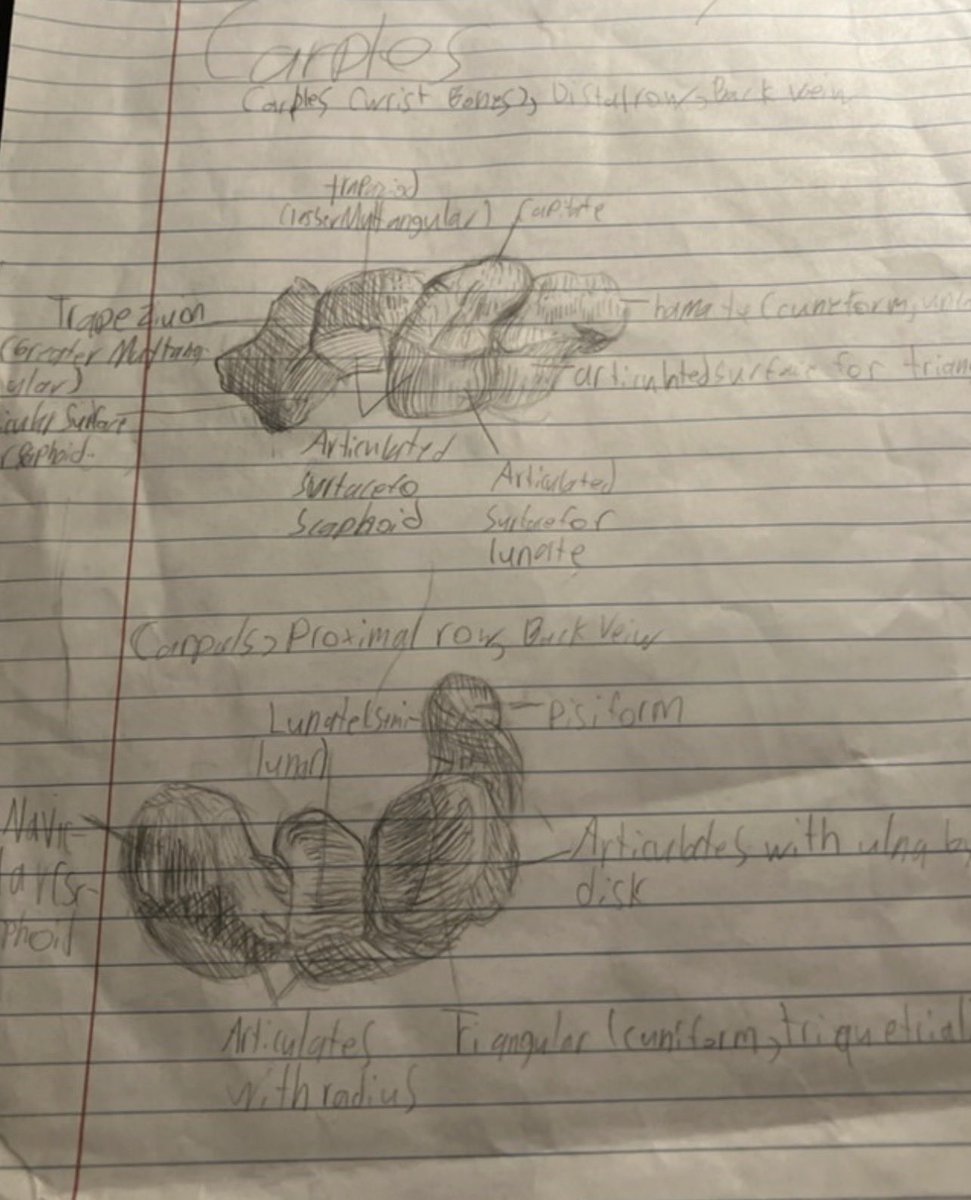 Carples
Carples (wrist Bones), Distal row, Back vein
trapaziod
(lesser Multangular)
Captate
Trapeziuon
(Greater Multang-
ular)
icular Surface
r Scphoid.
hamate (cuneform, un
articulated surface for trian
Articulated
surface to
Scaphoid
Articulated
Surface for
lunate
Carpals, Proximal row, Back View
Lunate (simi-
lunar)
Pisiform
Navic-
lar (Sc-
phoid
Articulates with ulna b
disk
Articulates
with radius
Triangular (cuniform, triquetrial